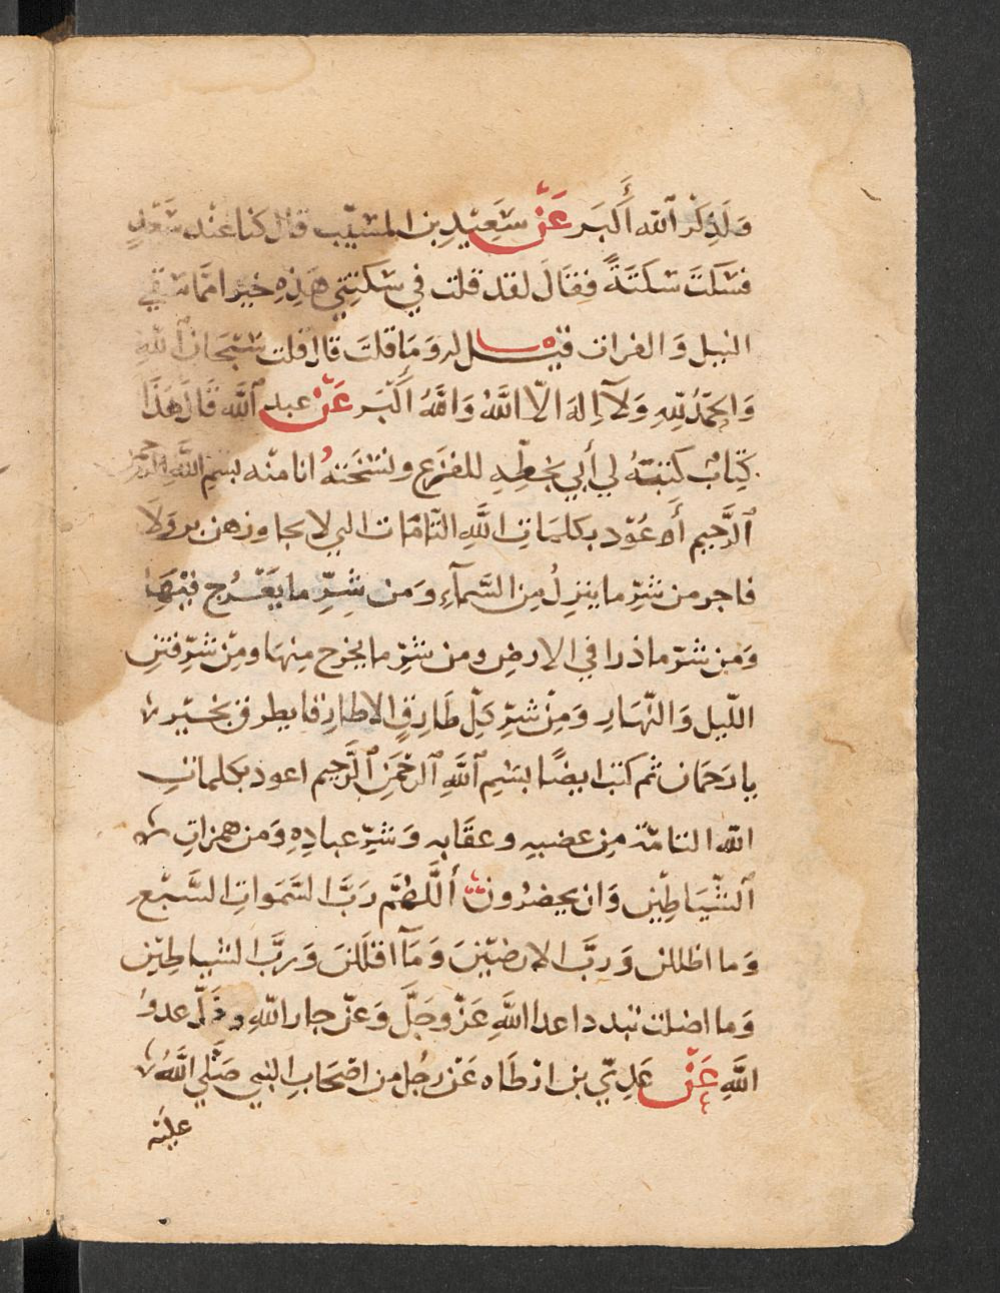 وَلَذِكْرُ ٱللّه أَكْبَر عَنْ سَعِيْدِ بن المسَيّب قال كنا عند سَعْدٍ
فسَكَتَ سَكتَةً فقَالَ لقد قلت في سَكتَتِي هَذِهِ خير امّا سَقي
النيل وَالفرات قيل له وَمَا قلتَ قال قلت سُبْحَانَ ٱللّهِ
وَالحَمْدُ للّهِ وَلآ اِلهَ الّا اللَّهُ وَاللَّهُ أَكْبَر عَنْ عبد ٱللَّه قَالَ هَذَا
كِتَابٌ كتبَتهُ لي أبي بخطِّهِ للفزَع ونسَخْتهُ انا منه بسْمِ اللَّهِ الرَّحمن
ٱلرَّحِيم أَعُوْذ بكلمَاتِ اللَّهِ التّامّات التي لا يجاوزهن بر وَلَا
فاجر من شَرِّ ما ينزِلُ مِن السَّمآءِ وَمن شِرِّ ما يَعْرُج فيْهَا
وَمن شرّ ما ذرا في الارضِ ومن شَرِّ ما يخرج مِنهَا ومِنْ شرّ فتَنِ
اللّيل وَالنّهَارِ وَمِنْ شرِّ كلّ طَارِقٍ الا طارِقا يطرق بخَيْر
يا رَحمَان ثم كتب ايضًا بسْمِ ٱللَّهِ ٱلرَّحْمَنِ ٱلرَّحِيم اعوذ بكلماتِ
اللّه التامّة مِن غضبِهِ وعقَابه وَشرِّ عبادِهِ وَمن همزاتِ
ٱلشّيَاطِيْنِ وَان يحضُرُون أَللَّهُمَّ رَبَّ السَّمَواتِ السَّبْع
وَما اظللن وَربَّ الارضيْنَ وَمَآ اقلَلنَ وَرَبَّ الشياطِيْنِ
وَما اضلت تبدد اعدا اللَّهِ عَزّ وَجَلَّ وَعزّ جار اللّهِ وذَلّ عدوُ
اللَّهِ عَنْ عَدِيّ بن ارطَاه عَن رجُل من اصْحَابِ النبي صَلّى اللَّهُ
عليْه